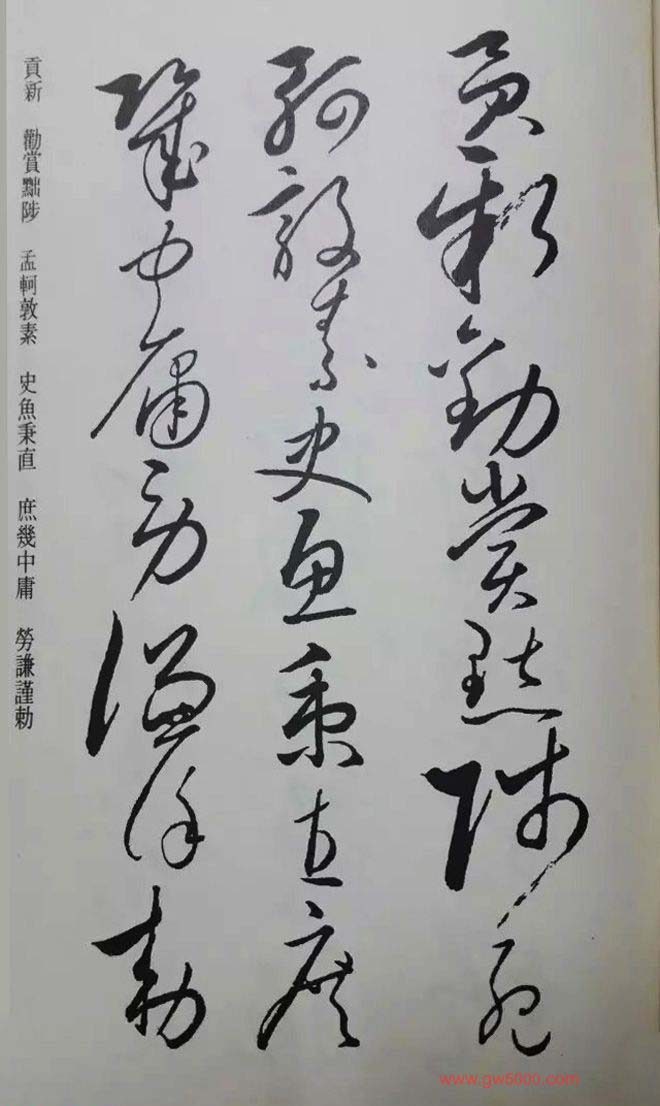 貢新勸賞黜陟孟
軻敦素史魚秉直庶
幾中庸勞謙謹勅
貢新 勸賞黜陟 孟軻敦素 史魚秉直 庶幾中庸 勞謙謹勅
www.gw5000.com